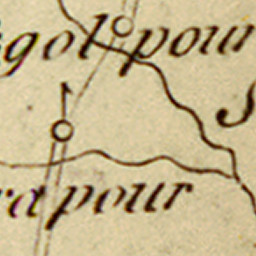 igol pour
S
ra pour